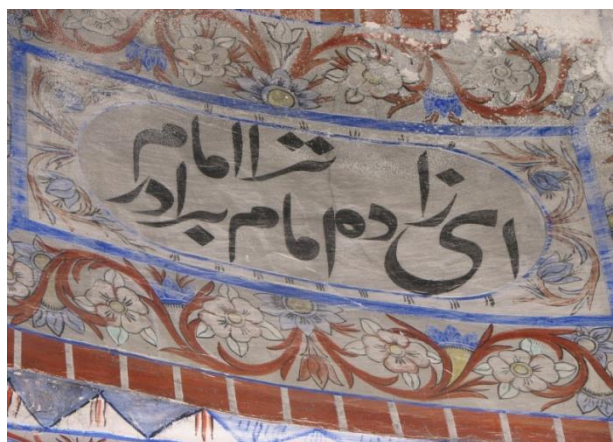 ای زاده امام برادر ترا امام